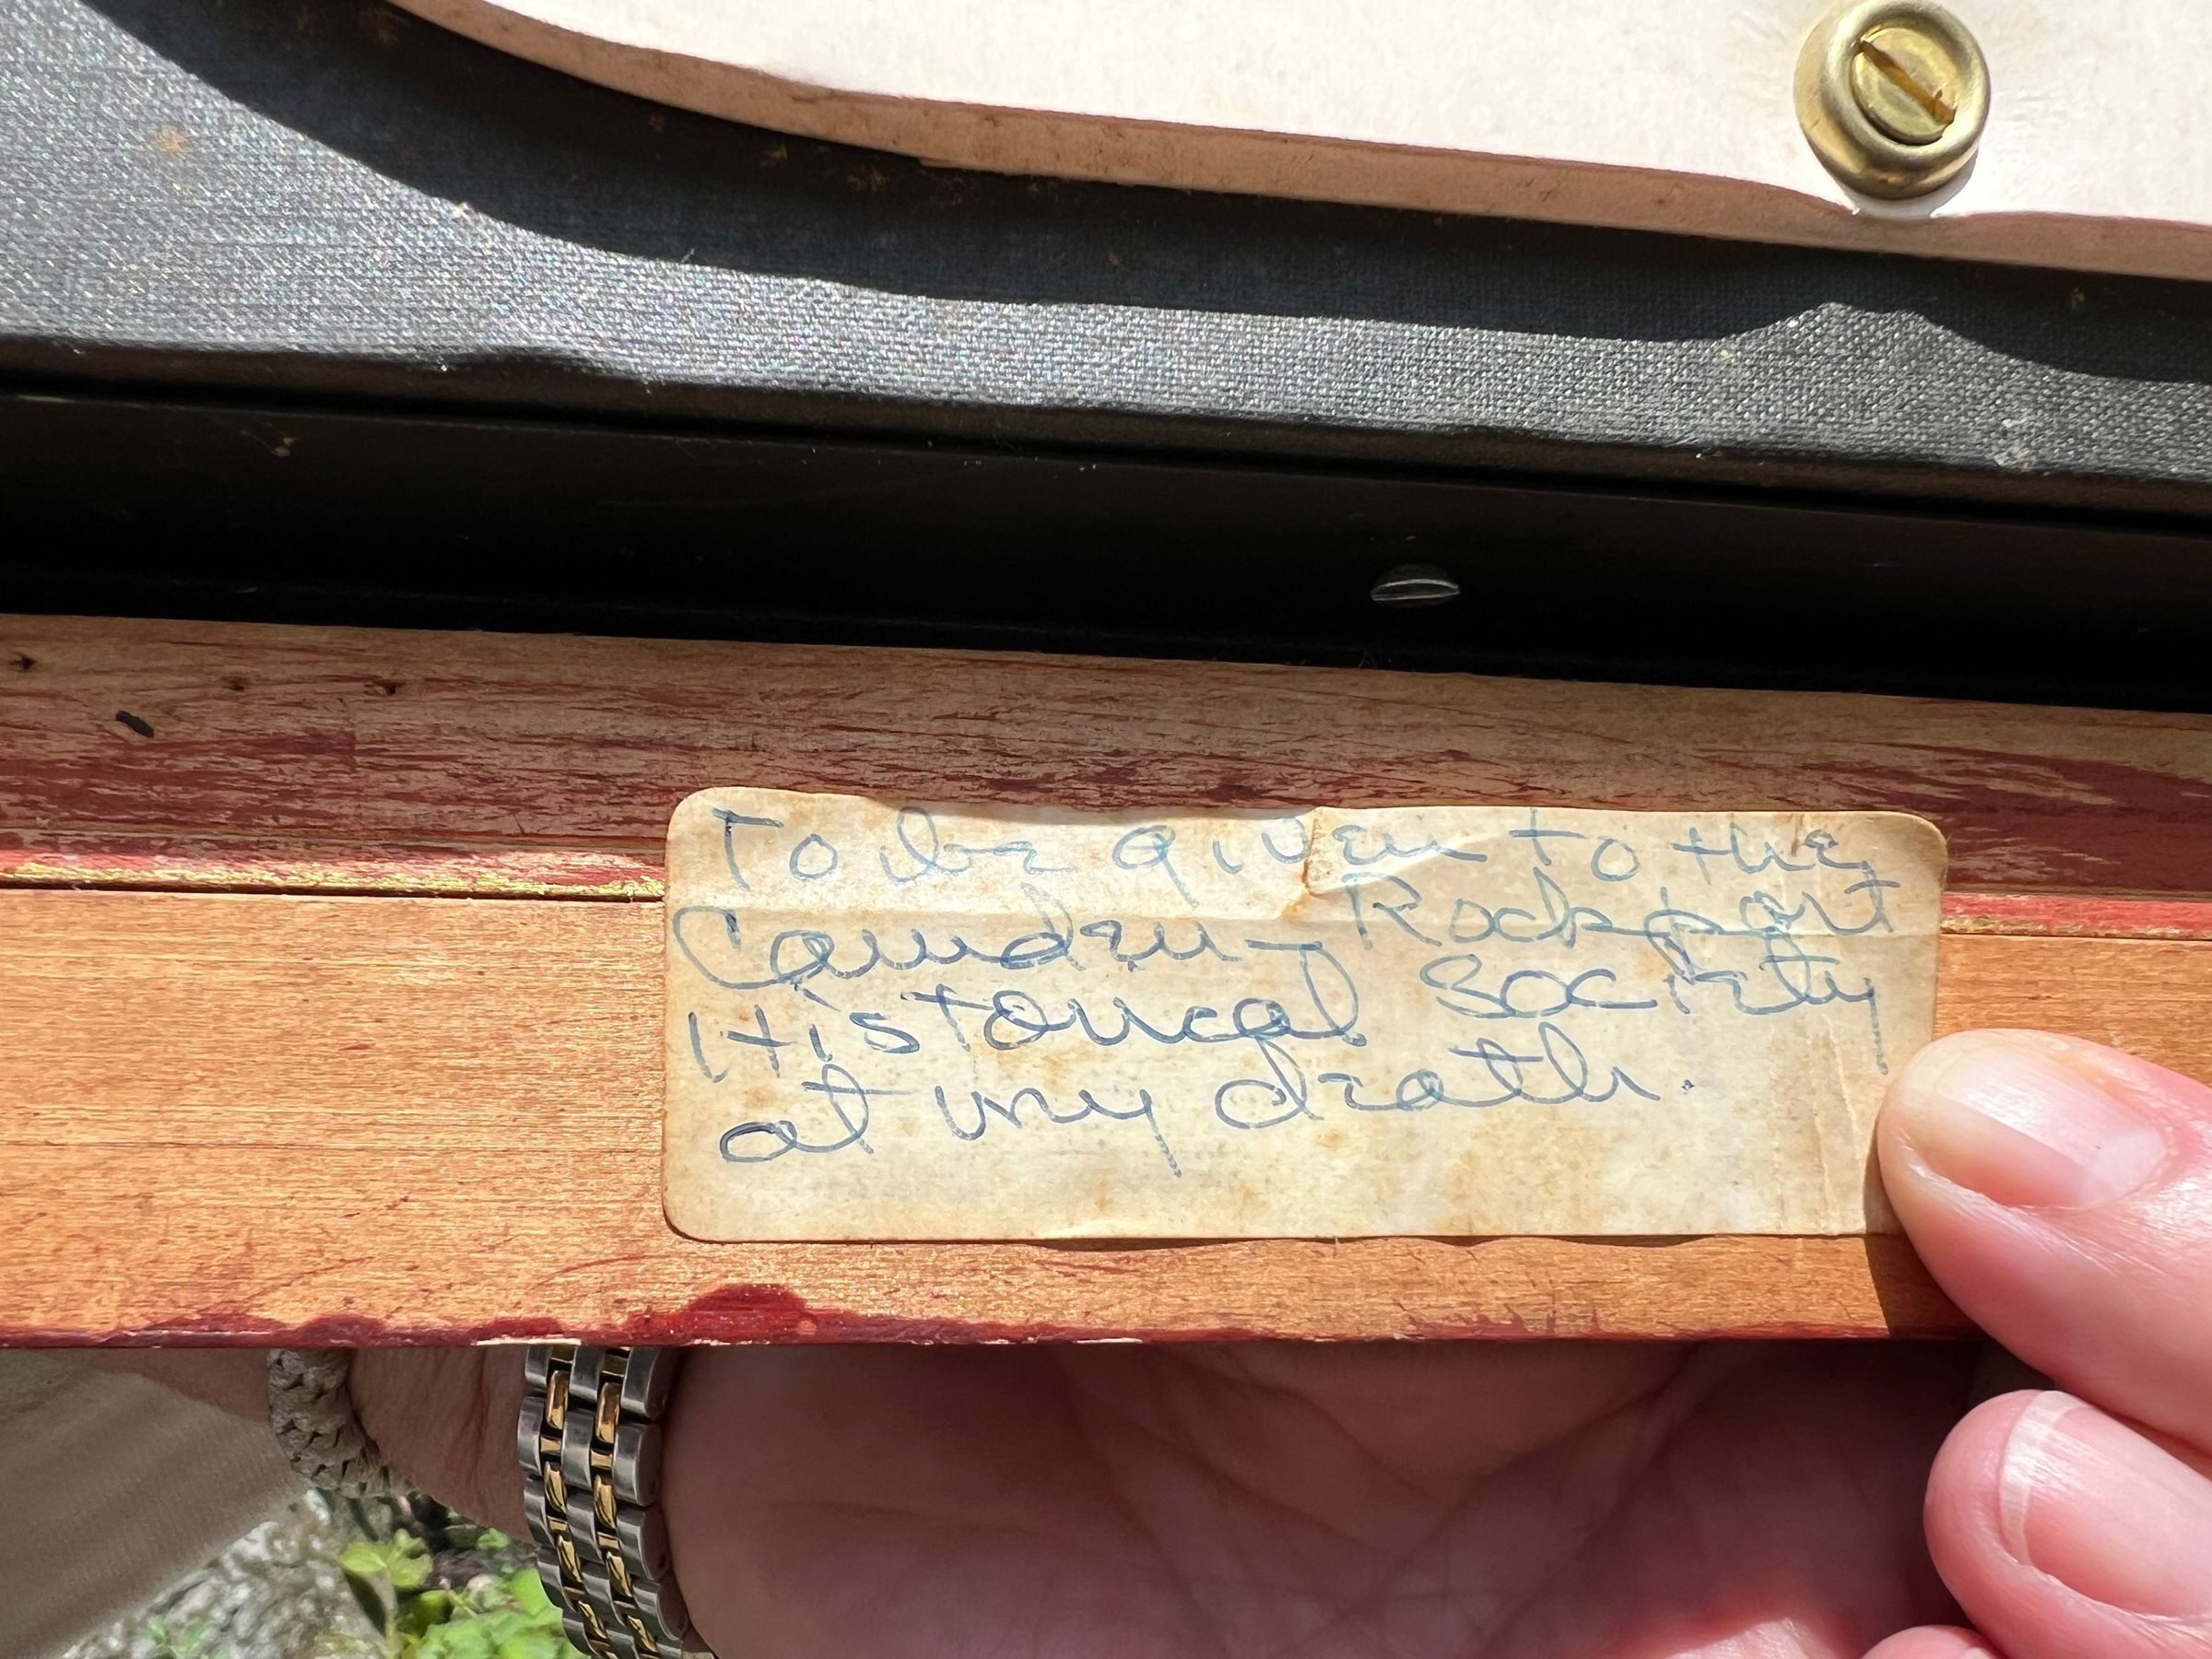 To be given to the
Camden - Rockport
Historical Society
at my death.